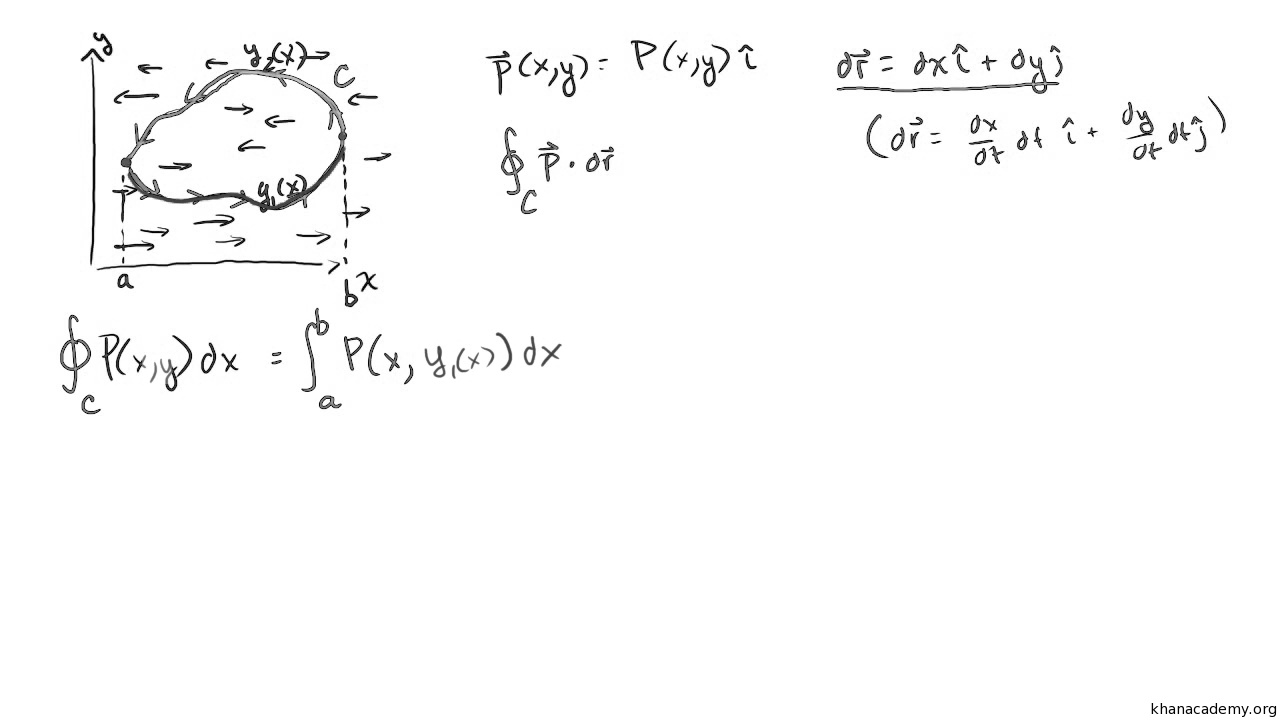 y
y₂(x)
C
y₁(x)
a
b
x
p⃗(x,y) = P(x,y) î
∮_C p⃗ · dr⃗
dr⃗ = dx î + dy ĵ
(dr⃗ = dx/dt dt î + dy/dt dt ĵ)
∮_C P(x,y) dx = ∫_a^b P(x, y₁(x)) dx
khanacademy.org